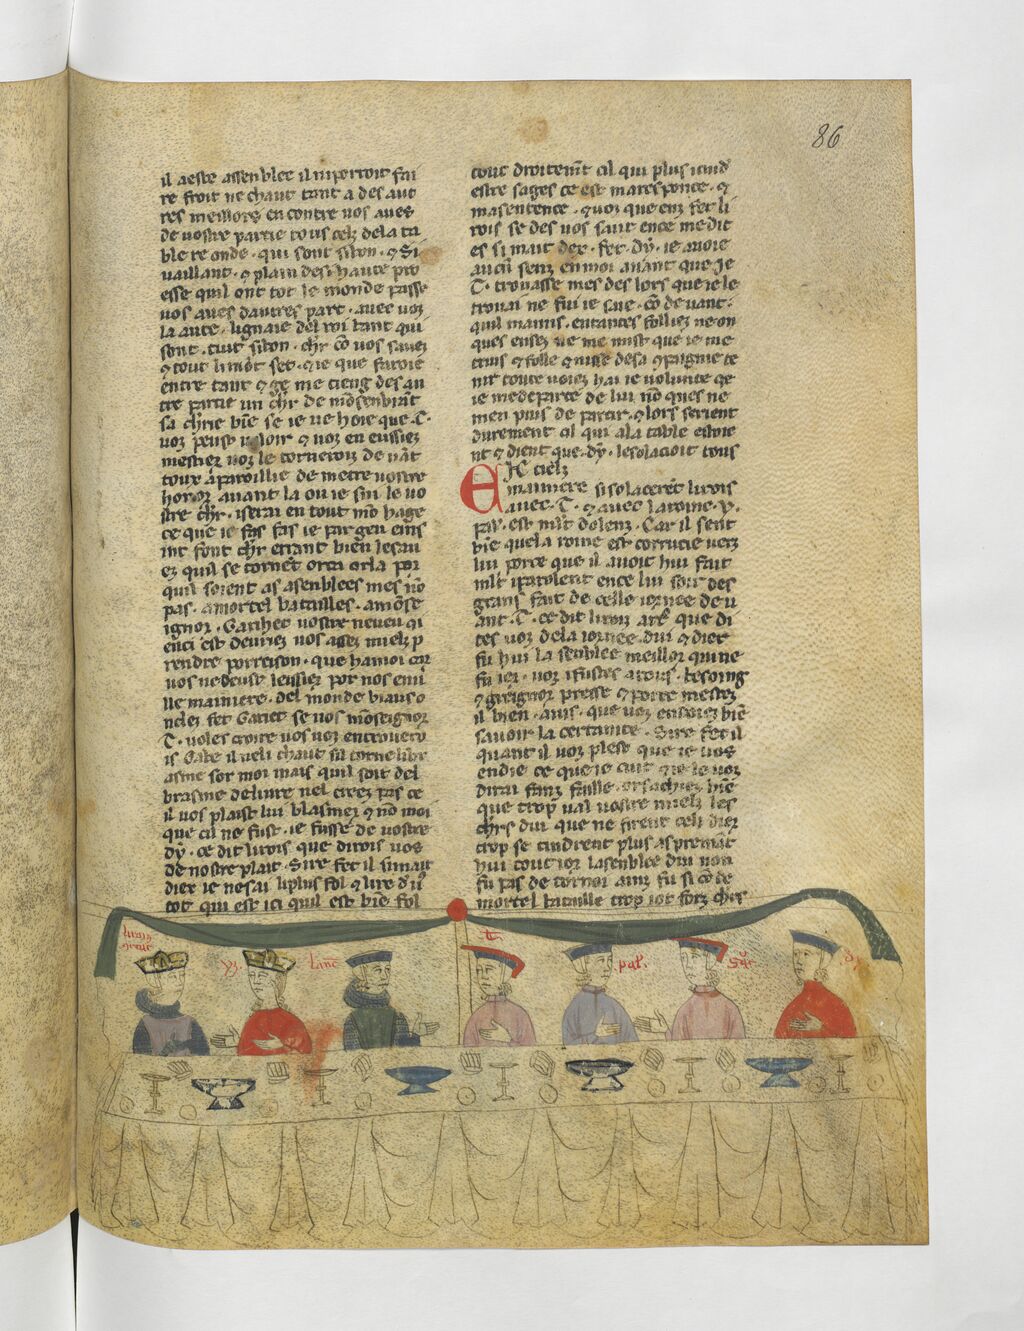 86
il aeste assenblee il mporroit fai
re froit ne chaut tant a des aut
res meillors en contre uos aues
de uostre partie tous celz dela ta
ble reonde . qui sont si bon . ⁊ si
uaillant . ⁊ plain des haute pro
esse quil ont tot le monde passe
uos aues dautres part . auec uoz
la aute . lignaie del roi bant qui
sont . tuit si bon . chr̅ cō uos sauez
⁊ tout li mōt set . ⁊ ie que feroie
entre tant ⁊ ge me tieng des au
tre partie un chr̅ de mōsenbiāt
sa chr̅ie biē se ie ue hoie que . T .
uoz peust ualoir ⁊ uoz en eussiez
mestier uoz le torneroiz de uāt
touz aparoillie de metre uostre
honor auant la ou ie sui le uo
stre chr̅ . iserai en tout mō hage
ce que ie fas
int font chr̅ errant bien lesau
ez quil se tornēt orca orla por
quil soient as asenblees mes nō
pas . amortel batailles . amōse
ignor . Garihet uostre neueu qi
enci est deuriez uos assez mielz p
rendre porreison . que ha moi car
uos ne deuse leussier por nos enui
lle mainiere . del monde biaus o
nclez fet Gariet se uos mōseignor
T . uoles croire uos uoz entrouero
is Gabe il neli chaut sil torne libr
asme sor moi mais quil soit del
brasme deliure nel creez pas ce
il uos plaist lui blasmez ⁊ nō moi
que cil ne fust . ie fusse de uostre
dy̅ . ce dit lirois que dirois uos
de nostre plait . Sire fet il si mait
diex ie nesai li plus fol ⁊ lire d'u
tot qui est ici quil est biē fol
tout droitemt cil qui plus cuid
estre sages ce est maresponce . ⁊
masentence . ⁊ uoz que enz fet li
rois se des uos saut ence me dit
es si mait dex . fet . dy̅ . ie auoie
aucū senz en moi auant que ie
T . trouasse mes des lors que ie le
trouai ne fui ie sage . cō deuant .
quil manuis . entantes folliez ne on
ques ensez ne me mist que ie me
teus ⁊ folle ⁊ nusse desa ⁊paignie te
nir toute uoiez hai ie uolunte qe
ie medeparte de lui nō ques ne
men puis de partir . ⁊ lors serient
durement cil qui ala table estoie
nt ⁊ dient que . dy̅ . lesolacioit tous
En ciels
mainiere si solacerēt lirois
auec . T . ⁊ auec laroine . y .
pal̅ . est mlt dolenz . Car il sent
biē quela roine est corrucie uers
lui porce que il auoit hui fait
mlt iparolent ence lui soir des
grans fait de celle iornee deu
ant . T . ce dit lirois art̅ que di
tes uoz dela iornee . dui ⁊ dier
fu hui la senblee meillor qui ne
fu ier . uoz ifustes atous . besoing
⁊ greignor presse ⁊ porce mestez
il bien . auis . que uoz ensaiez biē
sauoir la certainte . Sire fet il
quant il uoz plest que ie uos
endie ce que ie cuit ⁊ ie le uoz
dirai sanz faille . or sachiez biē
que trop ual uostre mielz les
chr̅s dui que ne firent celi dier
trop se tindrent plus aspremāt
hui tout ior lasenblee dui non
fu pas de tornoi ainz fu si cō de
mortel bataille trop iot forz chr̅s
lirois
artus
yz .
lanc̅
T̅
pal̅ .
Gar̅
dy̅